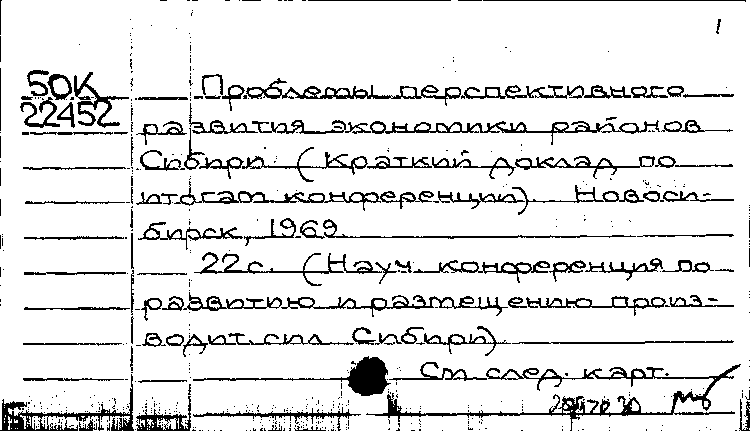 1
50К
22452
Проблемы перспективного
развития экономики районов
Сибири (Краткий доклад по
итогам конференции). Новоси-
бирск, 1969.
22с. (Науч. конференция по
развитию и размещению произ-
водит. сил Сибири)
См след. карт.